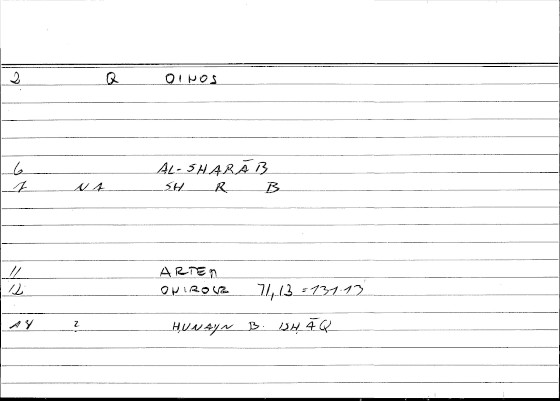 2 Q OINOS
6 AL-SHARĀB
7 NA SH R B
11 ARTEM
12 ONIROCR 71,13 = 131.13
14 2 HUNAYN B. ISHĀQ